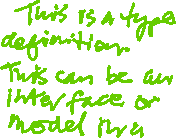 This is a type
definition.
This can be an
interface or
model in a